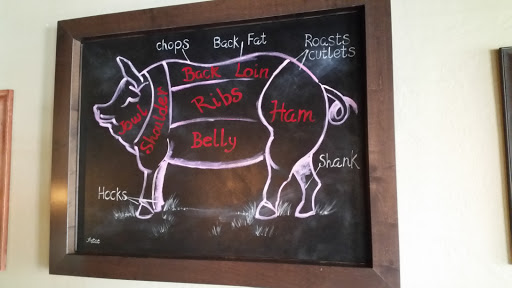 chops
Back Fat
Roasts
cutlets
Back Loin
Ribs
Jowl
Shoulder
Ham
Belly
Shank
Hocks